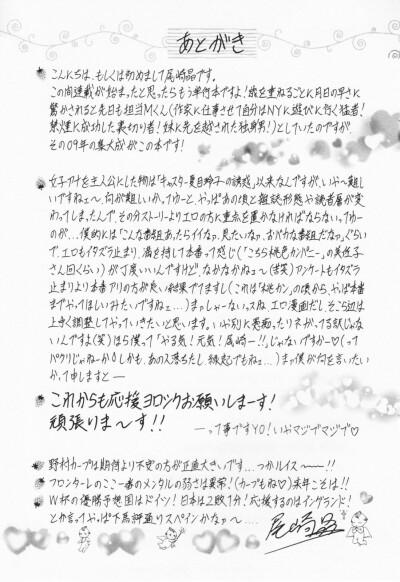 あとがき
こんにちは、もしくは初めまして尾崎晶です。
この間連載が始まったと思ったらもう単行本ですよ!歳を重ねるごとに月日の早さに
驚かされると先日も担当Mくん(作家に仕事させて自分はNYに遊びに行く猛者!
禁煙に成功した裏切り者!妹に先を越された独身男!)としていたのですが、
その09年の集大成がこの本です!
女子アナを主人公にした物は「キャスター夏目玲子の誘惑」以来なんですが、いや〜難し
いですねェ〜、何が難しいかってゆーと、やっぱあの頃と雑誌形態や読者層が変
わってしまったんで、その分ストーリーよりエロの方に重点を置かなければならないってゆー
のが…、僕的には「こんな番組あったらイイなァ、見たいなァ、おバカな番組だなァ」ぐらい
で、エロもイタズラ止まり、満を持して本番って感じ(「こちら桃色カンパニー」の美佐子
さん回くらい)が丁度いいんですけど、なかなかねェ〜(苦笑)アンケートもイタズラ
止まりより本番アリの方が良い結果でてますし(これは「桃カン」の頃から、やっぱ本番
までやってほしいみたいですねェ…)まァしゃーないっスね、エロ漫画だし、そこら辺は
上手く調整してやっていきたいと思います。いや別に巻頭ったりネガってる訳じゃな
いんですよ(笑)ほら僕って「やる気!元気!尾崎ー!!」じゃないですかー♡(って
パクリじゃねーか!しかも、あの人落ちたし、縁起でもねェ…)まァ僕が何を言いたい
かって申しますと―
これからも応援ヨロシクお願いしまーす!
頑張りま〜す!!
―って事ですYO!いやマジでマジで♡
野村カープは期待より不安の方が正直大きいです…つかルイス〜〜!!
フロンターレのここ一番のメンタルの弱さは異常!(カープもね♡)来年こそは!!
W杯の優勝予想国はドイツ!日本は2敗1分!応援するのはイングランド!
とか言ってやっぱ下馬評通りスペインかなァ〜…。
尾崎晶